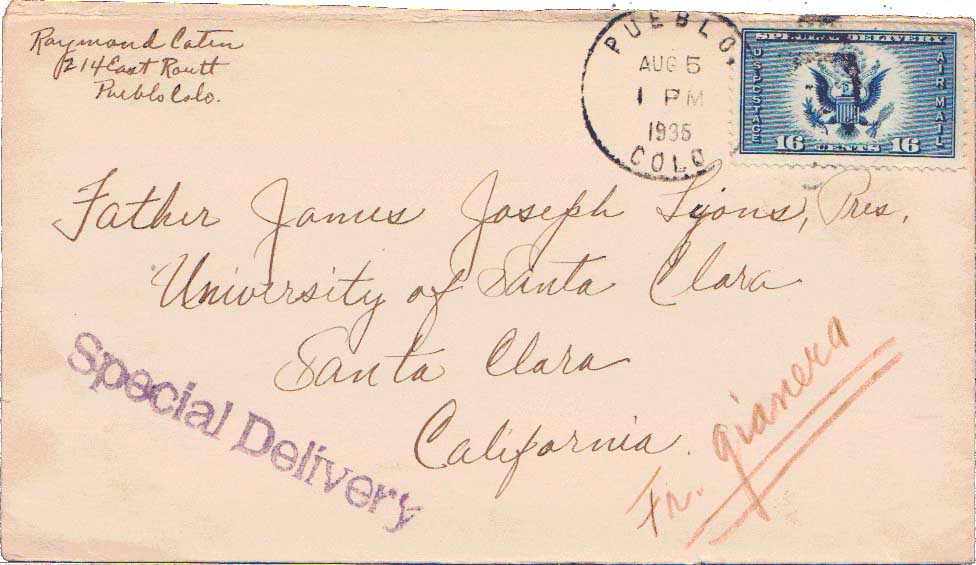 Raymond Caten
214 East Routt
Pueblo Colo.
PUEBLO,
AUG 5
1 PM
1935
COLO
SPECIAL DELIVERY
U.S. POSTAGE
AIR MAIL
16 CENTS 16
Father James Joseph Lyons, Pres.
University of Santa Clara
Santa Clara
California.
Special Delivery
Fr. Gianera